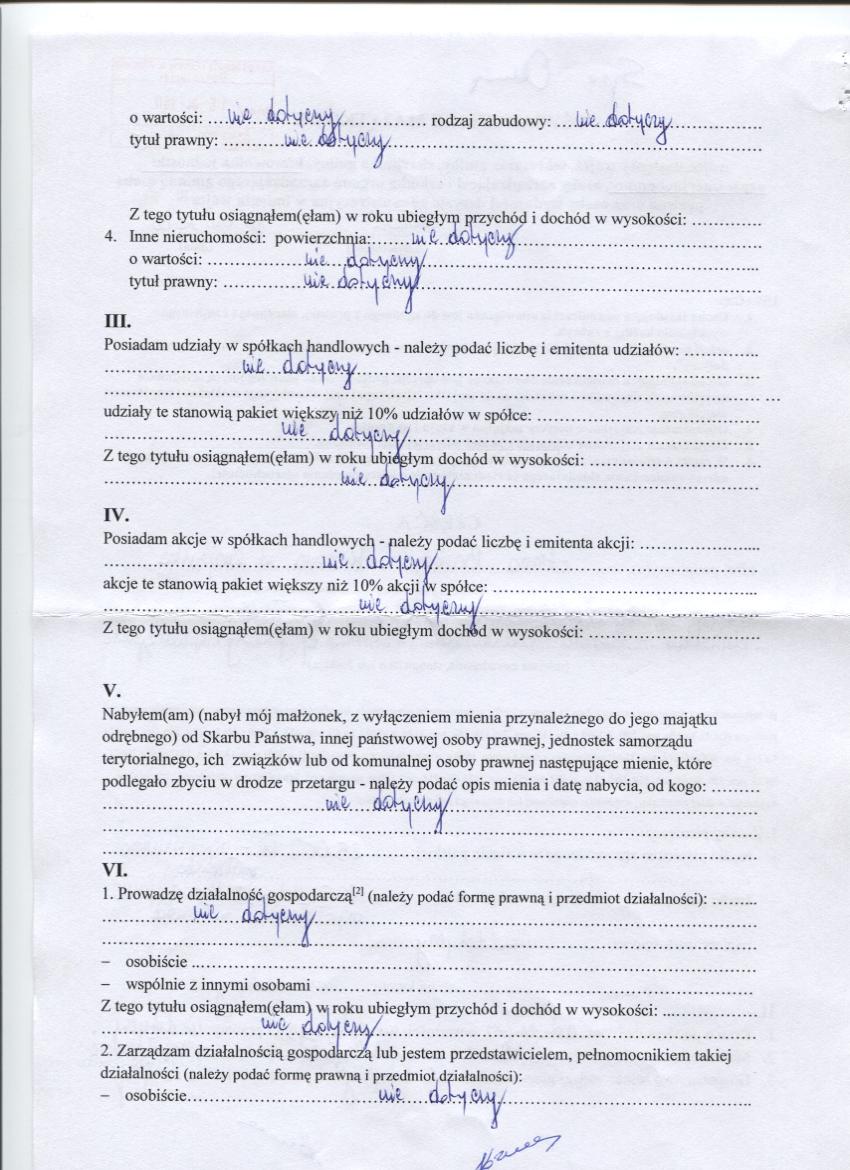 o wartości: ...nie dotyczy............... rodzaj zabudowy: ...nie dotyczy...............
tytuł prawny: ...........nie dotyczy...............
Z tego tytułu osiągnąłem(ęłam) w roku ubiegłym przychód i dochód w wysokości: ...............
4. Inne nieruchomości: powierzchnia:.......nie dotyczy...............
o wartości: ...............nie dotyczy...............
tytuł prawny: ...............nie dotyczy...............
III.
Posiadam udziały w spółkach handlowych - należy podać liczbę i emitenta udziałów: ...............
...............nie dotyczy...............
...............
udziały te stanowią pakiet większy niż 10% udziałów w spółce: ...............
...............nie dotyczy...............
Z tego tytułu osiągnąłem(ęłam) w roku ubiegłym dochód w wysokości: ...............
...............nie dotyczy...............
IV.
Posiadam akcje w spółkach handlowych - należy podać liczbę i emitenta akcji: ...............
...............nie dotyczy...............
akcje te stanowią pakiet większy niż 10% akcji w spółce: ...............
...............nie dotyczy...............
Z tego tytułu osiągnąłem(ęłam) w roku ubiegłym dochód w wysokości: ...............
V.
Nabyłem(am) (nabył mój małżonek, z wyłączeniem mienia przynależnego do jego majątku
odrębnego) od Skarbu Państwa, innej państwowej osoby prawnej, jednostek samorządu
terytorialnego, ich związków lub od komunalnej osoby prawnej następujące mienie, które
podlegało zbyciu w drodze przetargu - należy podać opis mienia i datę nabycia, od kogo: .........
...............nie dotyczy...............
...............
...............
VI.
1. Prowadzę działalność gospodarczą[2] (należy podać formę prawną i przedmiot działalności): ........
...............nie dotyczy...............
...............
– osobiście ...............
– wspólnie z innymi osobami ...............
Z tego tytułu osiągnąłem(ęłam) w roku ubiegłym przychód i dochód w wysokości: ...............
...............nie dotyczy...............
2. Zarządzam działalnością gospodarczą lub jestem przedstawicielem, pełnomocnikiem takiej
działalności (należy podać formę prawną i przedmiot działalności):
– osobiście...............nie dotyczy...............